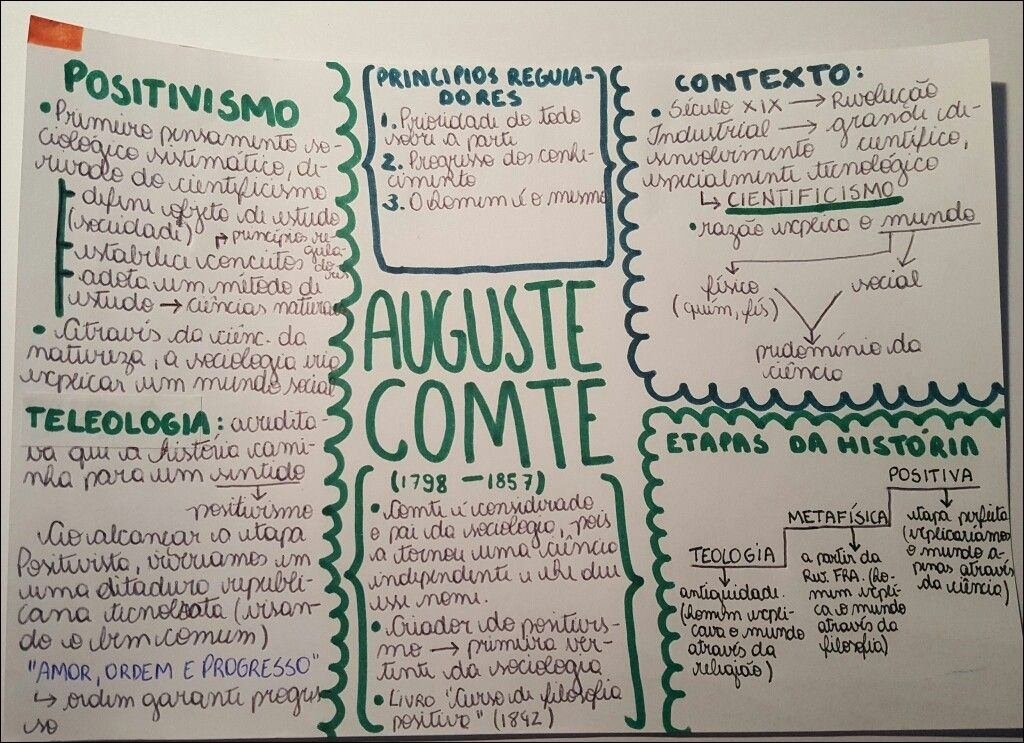 POSITIVISMO
• Primeiro pensamento so-
ciológico sistemático, de-
rivado do cientificismo
define objeto de estudo
(sociedade)
↱ princípios re-
gula-
dores
estabelece conceitos
adota um método de
estudo → ciências naturais
• Através da ciênc. da
natureza, a sociologia iria
explicar um mundo social
TELEOLOGIA: acredita-
va que a história cami-
nha para um sentido
positivismo
Ao alcançar a etapa
Positivista, viveríamos em
uma ditadura republi-
cana tecnocrata (visan-
do o bem comum)
"AMOR, ORDEM E PROGRESSO"
↳ ordem garante progres-
so
PRINCIPIOS REGULA-
DORES
1. Prioridade do todo
sobre a parte
2. Progresso dos conhe-
cimento
3. O homem é o mesmo
AUGUSTE
COMTE
(1798 - 1857)
• Comte é considerado
o pai da sociologia, pois
a tornou uma ciência
independente e lhe deu
esse nome.
• Criador do positivis-
mo → primeira ver-
tente da sociologia
• Livro "Curso de filosofia
positiva" (1842)
CONTEXTO:
• Século XIX → Revolução
Industrial → grande de-
senvolvimento científico,
especialmente tecnológico
↳ CIENTIFICISMO
• razão explica o mundo
físico
(quím, fís)
social
predomínio da
ciência
ETAPAS DA HISTÓRIA
POSITIVA
etapa perfeita
(explicaríamos
o mundo a-
penas através
da ciência)
METAFÍSICA
a partir da
Rev. FRA. (ho-
mem expli-
ca o mundo
através da
filosofia)
TEOLOGIA
antiguidade.
(homem expli-
cava o mundo
através da
religião)